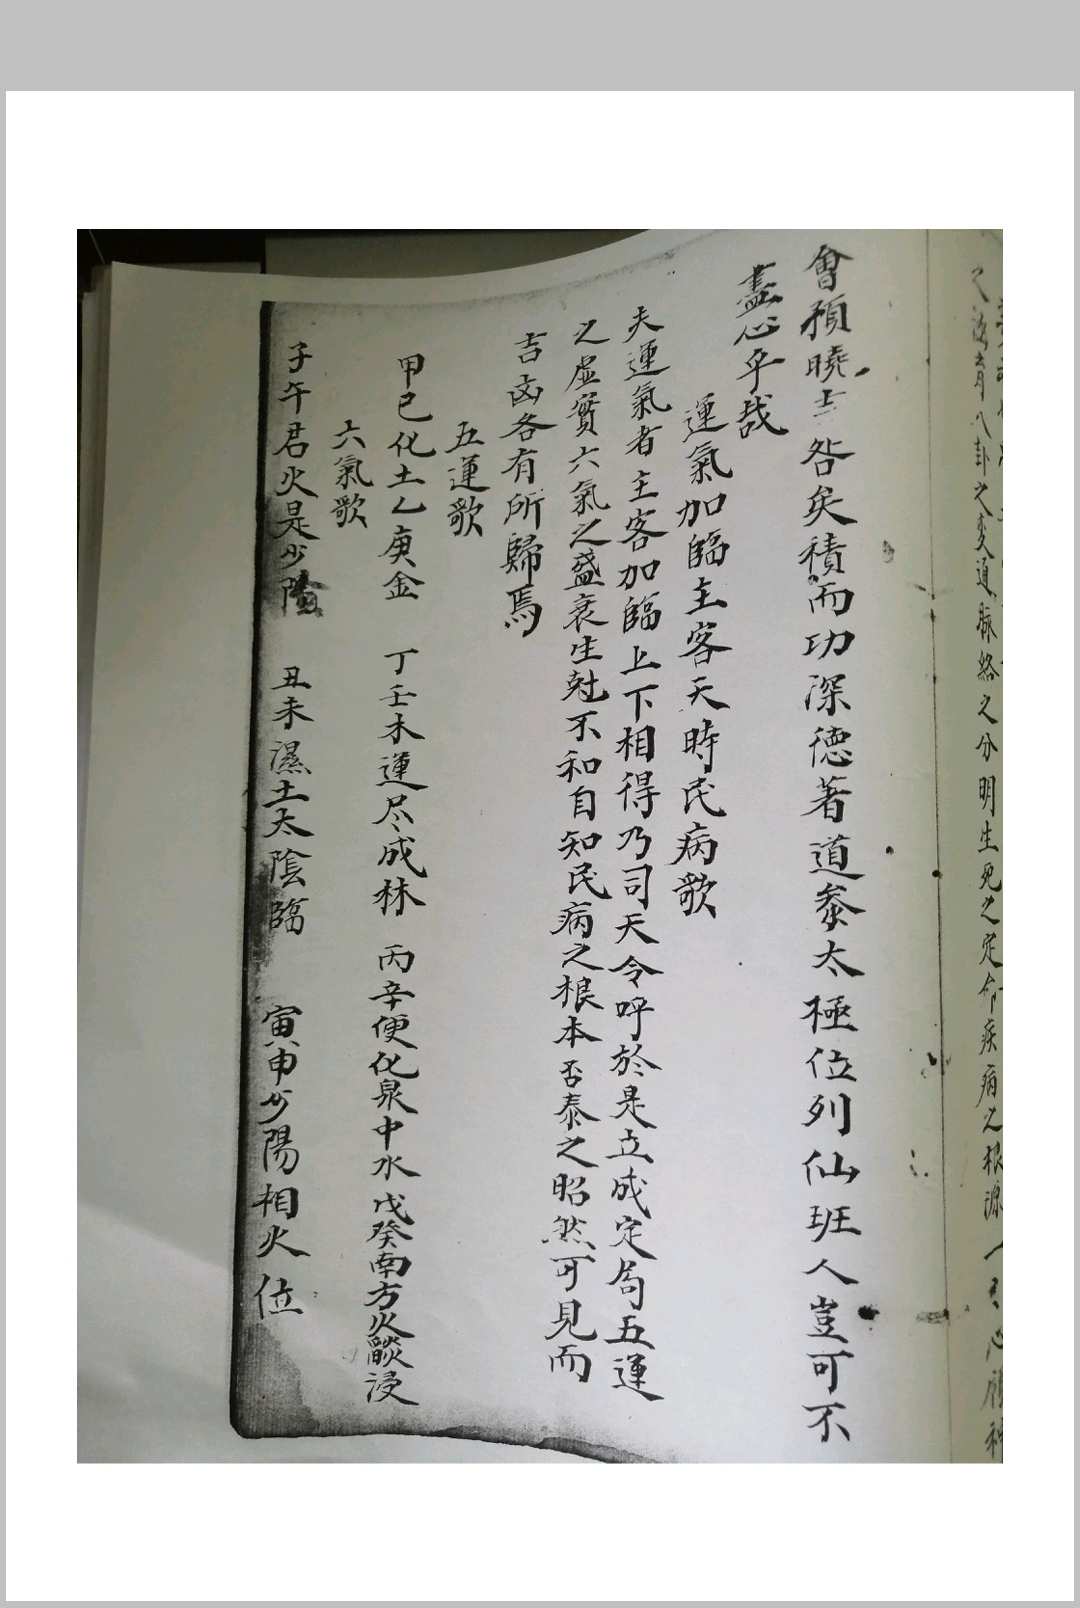 之海育八卦之爻道脉絡之分明生死之定命疾病之根源一心
會預曉吉咎矣積而功深德著道參太極位列仙班人豈可不
盡心乎哉
運氣加臨主客天時民病歌
夫運氣者主客加臨上下相得乃司天令呼於是立成定局五運
之虛實六氣之盛衰生尅不和自知民病之根本否泰之昭然可見而
吉凶各有所歸焉
五運歌
甲己化土乙庚金 丁壬木運尽成林 丙辛便化泉中水戊癸南方火燄浸
六氣歌
子午君火是少陰 丑未濕土太陰臨 寅申少陽相火位